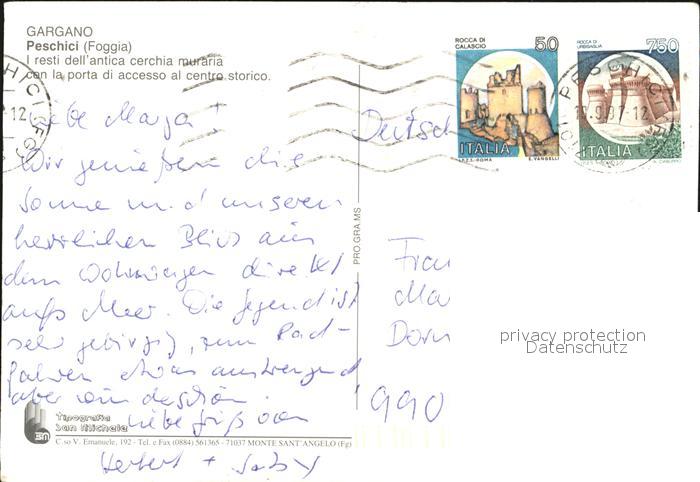 GARGANO
Peschici (Foggia)
I resti dell'antica cerchia muraria
con la porta di accesso al centro storico.
ROCCA DI
CALASCIO
50
ITALIA
I.P.Z.S.-ROMA E. VANGELLI
ROCCA DI
URBISAGLIA
750
ITALIA
PESCHICI
9.97-12
Liebe Marga!
Wir genießen die
Sonne und unseren
herrlichen Blick aus
dem Wohnwagen direkt
aufs Meer. Die Gegend ist
sehr gebirgig, zum Rad-
fahren etwas anstrengend
aber wunderschön.
Liebe Grüße von
Herbert +
Deutsch
PRO.GRA.MS
Frau
Ma
Dorn
990
privacy protection
Datenschutz
Tipografia
San Michele
C.so V. Emanuele, 192 - Tel. e Fax (0884) 561365 - 71037 MONTE SANT'ANGELO (Fg)